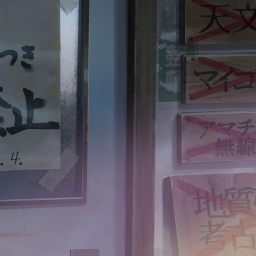 つき
止
.4.
天文
マイコ
アマチ
無線
地質
考古